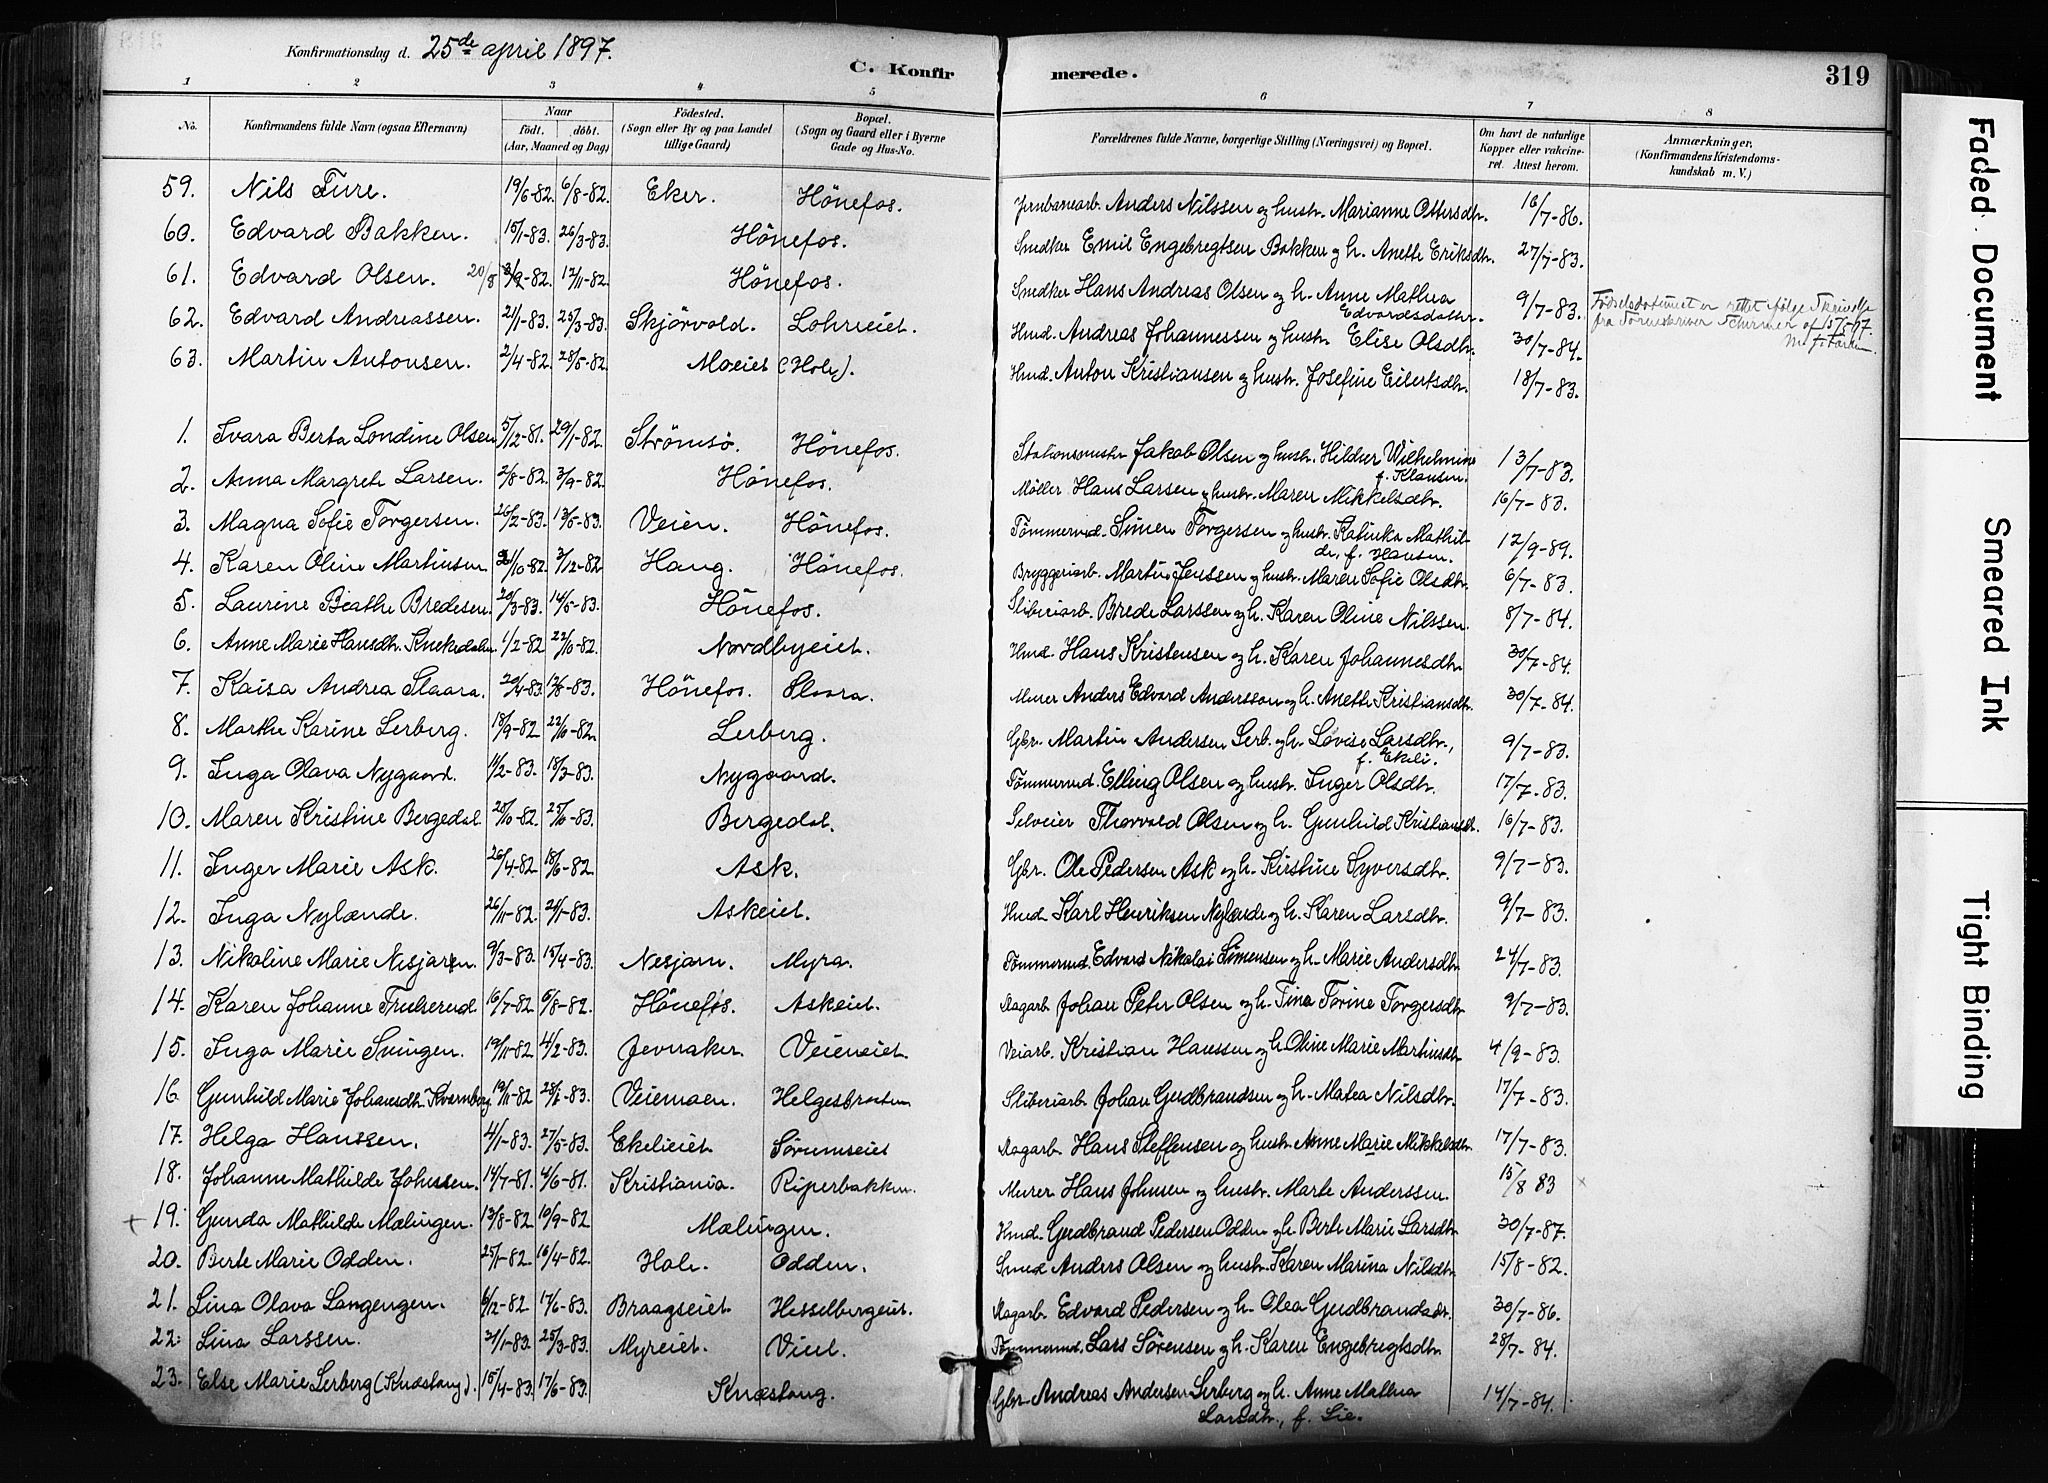 Konfirmationsdag d. 25de april 1897.
C. Konfirmerede.
319
1 2 3 4 5 6 7 8
No. Konfirmandens fulde Navn (ogsaa Efternavn) Naar født. døbt. (Aar, Maaned og Dag) Fødested. (Sogn eller By og paa Landet tillige Gaard) Bopæl. (Sogn og Gaard eller i Byerne Gade og Hus-No. Forældrenes fulde Navne, borgerlige Stilling (Næringsvei) og Bopæl. Om havt de naturlige Kopper eller vakcineret. Attest herom. Anmærkninger. (Konfirmandens Kristendomskundskab m. V.)
59. Nils Ture. 19/6-82. 6/8-82. Eker. Hönefos. Jernbanearb. Anders Nilssen og hustr. Marianne Ottersdtr. 16/7-86.
60. Edvard Bakken. 15/1-83. 26/3-83. Hönefos. Snedker Emil Engebregtsen Bakken og h. Anette Eriksdtr. 27/7-83.
61. Edvard Olsen. 20/8 -82. 12/11-82. Hönefos. Snedker Hans Andreas Olsen og h. Anne Mathea Edvardsdatter. 9/7-83. Fødselsdatumet er rettet ifølge Skrivelse fra Sorenskriver Schirmer af 15/5-97.
62. Edvard Andreassen. 21/1-83. 25/3-83. Skjörvold. Lohreiet. Hmd. Andreas Johannessen og hustr. Elise Olsdtr. 30/7-84.
63. Martin Antonsen. 2/4-82. 28/5-82. Moeiet (Hole). Hmd. Anton Kristiansen og hustr. Josefine Eilertsdtr. 18/7-83.
1. Svara Berta Londine Olsen 5/12-81. 29/1-82. Strömsö. Hönefos. Stationsmester Jakob Olsen og hustr. Hildur Wilhelmine f. Klausen. 13/7-83.
2. Anna Margrete Larsen. 2/8-82. 3/9-82. Hönefos. Møller Hans Larsen og hustr. Maren Mikkelsdtr. 16/7-83.
3. Magna Sofie Torgersen. 26/2-83. 13/5-83. Veien. Hönefos. Tömmermd. Simen Torgersen og hustr. Katinka Mathilde, f. Hansen. 12/9-89.
4. Karen Oline Martinsen /10-82. 3/12-82. Haug. Hönefos. Bryggeriarb. Martin Jenssen og hustr. Maren Sofie Olsdtr. 6/7-83.
5. Laurine Beathe Bredesen. 20/3-83. 14/5-83. Hönefos. Sliberiarb. Brede Larssen og h. Karen Oline Nilssen. 8/7-84.
6. Anne Marie Hansdtr. Knekedalen 1/2-82 22/10-82. Nordbyeiet. Hmd. Hans Kristensen og h. Karen Johannesdtr. 30/7-84.
7. Kaisa Andrea Slaara. 20/4-83. 12/8-83. Hönefos. Slaara. Murer Anders Edvard Andersson og h. Anette Kristiansdtr. 30/7-84.
8. Marthe Karine Lerberg. 18/9-82 22/10-82. Lerberg. Gbr. Martin Andersen Lerb. og h. Lovise Larsdtr., f. Ekeli. 9/7-83.
9. Inga Olava Nygaard. 11/2-83. 18/3-83. Nygaard. Tömmermd. Elling Olsen og hustr. Inger Olsdtr. 17/7-83.
10. Maren Kristine Bergedal. 20/10-82. 25/10-83. Bergedal. Selveier Thorvald Olsen og h. Gunhild Kristiansdtr. 16/7-83.
11. Inger Marie Ask. 26/4-82 18/6-82. Ask. Gbr. Ole Pedersen Ask og h. Kirstine Syversdtr. 9/7-83.
12. Inga Nylænde. 26/11-82. 21/1-83. Askeiet. Hmd. Karl Henriksen Nylænde og h. Karen Larsdtr. 9/7-83.
13. Nikoline Marie Nesjaren. 9/3-83. 15/4-83. Nesjarn. Myra. Tömmermd. Edvard Nikolai Simensen og h. Marie Andersdtr. 24/7-83.
14. Karen Johanne Trulserud. 16/7-82. 6/8-82. Hönefos. Askeiet. Dagarb. Johan Peter Olsen og h. Tina Torine Torgersdtr. 9/7-83.
15. Inga Marie Svingen. 19/11-82. 4/2-83. Jevnaker. Veieneiet. Veiarb. Kristian Hanssen og h. Oline Marie Martinsdtr. 4/9-83.
16. Gunhild Marie Johansdtr. Kvernberg 19/11-82 28/1-83. Veiemoen. Helgesbraaten Sliberiarb. Johan Gudbrandsen og h. Matea Nilsdtr. 17/7-83.
17. Helga Hanssen. 4/1-83. 27/5-83. Ekelieiet. Sørumseiet Dagarb. Hans Steffensen og hustr. Anne Marie Mikkelsdtr. 17/7-83.
18. Johanne Mathilde Johnsen. 14/7-81. 4/6-81. Kristiania. Riperbakken. Murer Hans Johnsen og hustr. Marte Anderssen. 15/8 83
+ 19. Gunda Mathilde Mælingen. 13/8-82 10/9-82 Mælingen. Hmd. Gudbrand Pedersen Odden og h. Berte Marie Larsdtr. 30/7-87.
20. Berte Marie Odden. 25/1-82. 16/4-82. Hole. Odden. Smed Anders Olsen og hustr. Karen Marina Nilsdtr. 15/8-82.
21. Lina Olava Langengen. 6/12-82 17/6-83. Braagseiet Hesselbergeiet. Dagarb. Edvard Pedersen og h. Olea Gudbrandsdtr. 30/7-86.
22. Lina Larssen. 31/1-83. 25/3-83. Myreiet. Viul. Tömmermd. Lars Sörensen og h. Karen Engebregtsdtr. 28/7-84.
23. Else Marie Lerberg (Knæstang). 15/4-83. 17/6-83. Knæstang. Gbr. Andreas Andersen Lerberg og h. Anne Mathea Larsdtr., f. Lie. 14/7-84.
Faded Document
Smeared Ink
Tight Binding